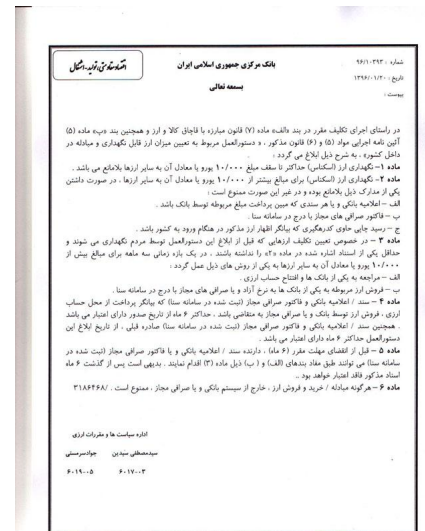 شماره : ۹۶/۱۰۳۹۳
تاریخ : ۱۳۹۶/۰۱/۲۰
پیوست :
بانک مرکزی جمهوری اسلامی ایران
بسمه تعالی
اقتصاد مقاومتی، تولید - اشتغال
در راستای اجرای تکلیف مقرر در بند «الف» ماده (۷) قانون مبارزه با قاچاق کالا و ارز و همچنین بند «پ» ماده (۵)
آئین نامه اجرایی مواد (۵) و (۶) قانون مذکور ، و دستورالعمل مربوط به تعیین میزان ارز قابل نگهداری و مبادله در
داخل کشور» ، به شرح ذیل ابلاغ می گردد :
ماده ۱– نگهداری ارز (اسکناس) حداکثر تا سقف مبلغ ۱۰/۰۰۰ یورو یا معادل آن به سایر ارزها بلامانع می باشد .
ماده ۲– نگهداری ارز (اسکناس) برای مبالغ بیشتر از ۱۰/۰۰۰ یورو یا معادل آن به سایر ارزها ، در صورت داشتن
یکی از مدارک ذیل بلامانع بوده و در غیر این صورت ممنوع است :
الف – اعلامیه بانکی و یا هر سندی که مبین پرداخت مبلغ مربوطه توسط بانک باشد .
ب – فاکتور صرافی های مجاز با درج در سامانه سنا .
ج – رسید چاپی حاوی کدرهگیری که بیانگر اظهار ارز مذکور در هنگام ورود به کشور باشد .
ماده ۳ – در خصوص تعیین تکلیف ارزهایی که قبل از ابلاغ این دستورالعمل توسط مردم نگهداری می شوند و
حداقل یکی از اسناد اشاره شده در ماده «۲» را نداشته باشند ، در یک بازه زمانی سه ماهه برای مبالغ بیش از
۱۰/۰۰۰ یورو یا معادل آن به سایر ارزها به یکی از روش های ذیل عمل گردد :
الف – مراجعه به یکی از بانک ها و افتتاح حساب ارزی .
ب – فروش ارز مربوطه به یکی از بانک ها به نرخ آزاد و یا صرافی های مجاز با درج در سامانه سنا .
ماده ۴ – سند / اعلامیه بانکی و فاکتور صرافی مجاز (ثبت شده در سامانه سنا) که بیانگر پرداخت از محل حساب
ارزی ، فروش ارز توسط بانک و یا صرافی مجاز به متقاضی باشد ، حداکثر ۶ ماه از تاریخ صدور دارای اعتبار می باشد
. همچنین سند / اعلامیه بانکی و فاکتور صرافی مجاز (ثبت شده در سامانه سنا) صادره قبلی ، از تاریخ ابلاغ این
دستورالعمل حداکثر ۶ ماه دارای اعتبار می باشد .
ماده ۵ – قبل از انقضای مهلت مقرر (۶ ماه) ، دارنده سند / اعلامیه بانکی و یا فاکتور صرافی مجاز (ثبت شده در
سامانه سنا) می توانند طبق مفاد بندهای (الف) و ( ب ) ذیل ماده (۳) اقدام نمایند . بدیهی است پس از گذشت ۶ ماه
اسناد مذکور فاقد اعتبار خواهد بود ..
ماده ۶ – هرگونه مبادله / خرید و فروش ارز ، خارج از سیستم بانکی و یا صرافی مجاز ، ممنوع است . /۳۱۸۶۴۶۸
اداره سیاست ها و مقررات ارزی
سیدمصطفی سیدین جوادسرمستی
۶۰۱۷-۰۳ ۶۰۱۹-۰۵